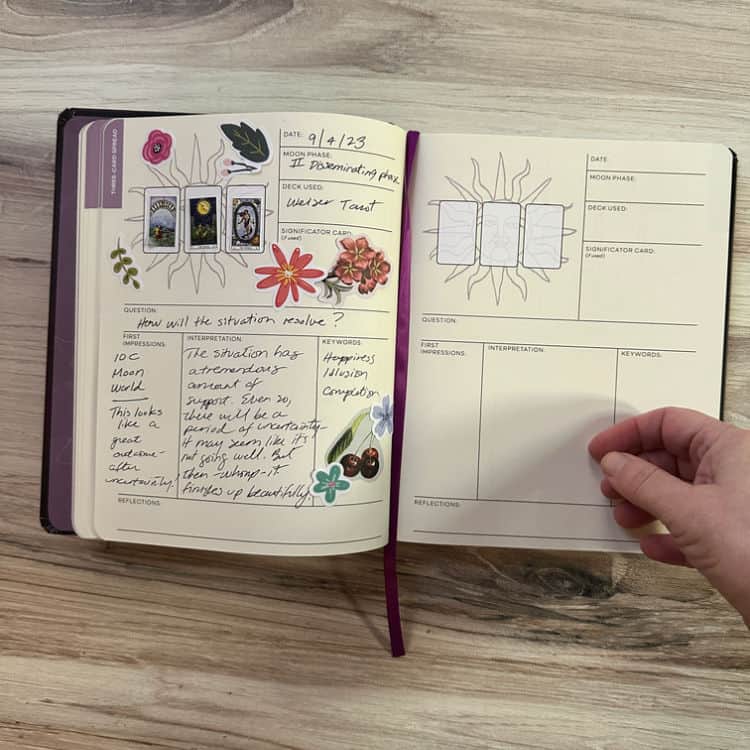 THREE-CARD SPREAD
DATE: 9/4/23
MOON PHASE:
II Disseminating phase
DECK USED:
Weiser Tarot
SIGNIFICATOR CARD:
(if used)
QUESTION:
How will the situation resolve?
FIRST
IMPRESSIONS:
10 C
Moon
World
This looks
like a
great
outcome-
after
uncertainty!
INTERPRETATION:
The situation has
a tremendous
amount of
support. Even so,
there will be a
period of uncertainty.
It may seem like it's
not going well. But
then -whomp- it
finishes up beautifully.
KEYWORDS:
Happiness
Illusion
Completion
REFLECTIONS:
DATE:
MOON PHASE:
DECK USED:
SIGNIFICATOR CARD:
(if used)
QUESTION:
FIRST
IMPRESSIONS:
INTERPRETATION:
KEYWORDS:
REFLECTIONS: